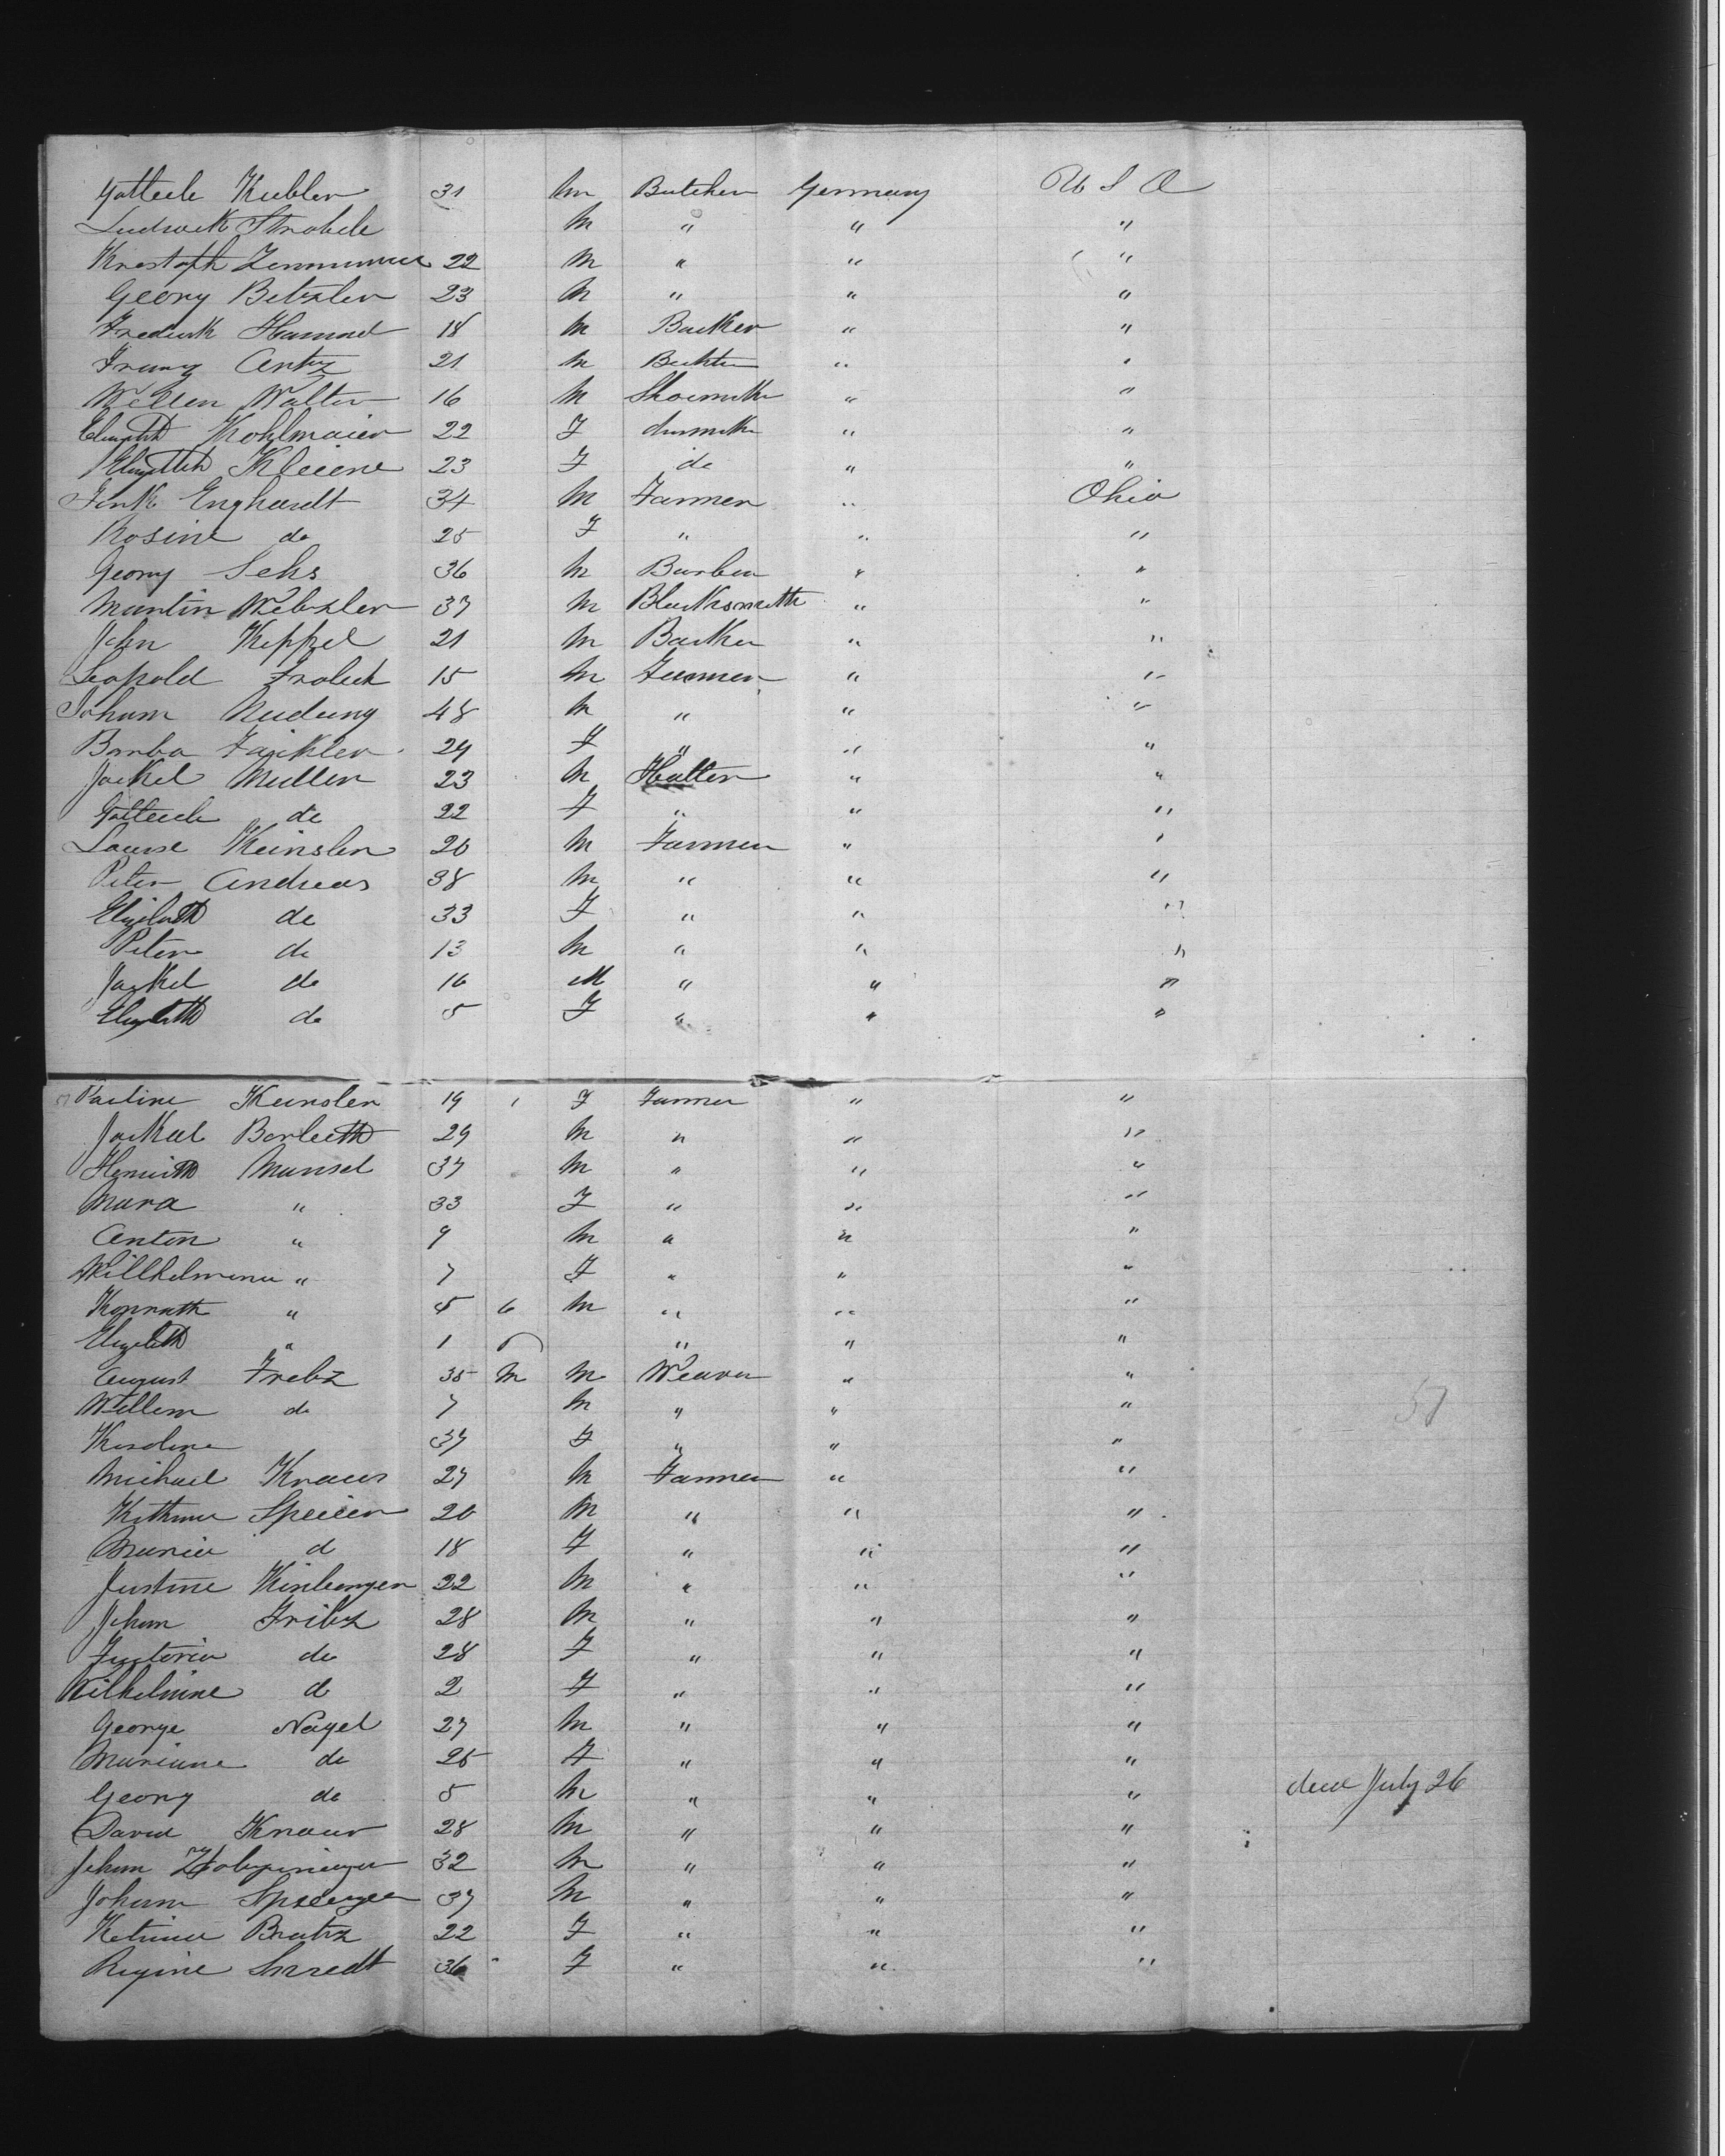 Gotleeb Kubler 31 M Butcher Germany U S A
Ludwick Strobele M " " "
Krestoph 22 M " " "
Georg Betzler 23 M " " "
Fredrick Hammel 18 M Backer " "
Franz Antz 21 M " "
Willem Walter 16 M Shoemaker " "
Elisabeth Kohlmaier 22 F " "
Elizabeth Kleiene 23 F do " "
Fink Enghardt 34 M Farmer " Ohio
Rosine do 25 F " " "
Georg Sehs 36 M Barber " "
Martin Webzler 37 M Blacksmith " "
John Keppel 21 M Backer " "
Leopold Frolich 15 M Farmer " "
Johann Nudung 48 M " " "
Barba Faikler 29 F " " "
Jackel Muller 23 M Hatter " "
Gotleeb do 22 F " " "
Louise Keinsler 20 M Farmer " "
Peter Andreas 38 M " " "
Elizebeth do 33 F " " "
Peter do 13 M " " "
Jackel do 16 M " " "
Elizebeth do 5 F " " "
Pauline Keinsler 19 F Farmer " "
Jackel Barleeth 29 M " " "
Munsel 37 M " " "
Mara " 33 F " " "
Anton " 9 M " " "
Willhelmena " 7 F " " "
Konrath " 5 6 M " " "
Elizebeth " 1 " " "
August Frebz 35 M M Weaver " "
Willem do 7 M " " "
Karoline 37 F " " "
Michael Kraus 27 M Farmer " "
Speier 20 M " " "
Maria d 18 F " " "
Justine 22 M " " "
Johan Fribz 28 M " " "
do 28 F " " "
Wilhelmine d 2 F " " "
George Nagel 27 M " " "
Mariane do 25 F " " "
Georg do 5 M " " " July 26
David Knaur 28 M " " "
Johan 32 M " " "
Johann 37 M " " "
Bratz 22 F " " "
Regine 36 F " " "